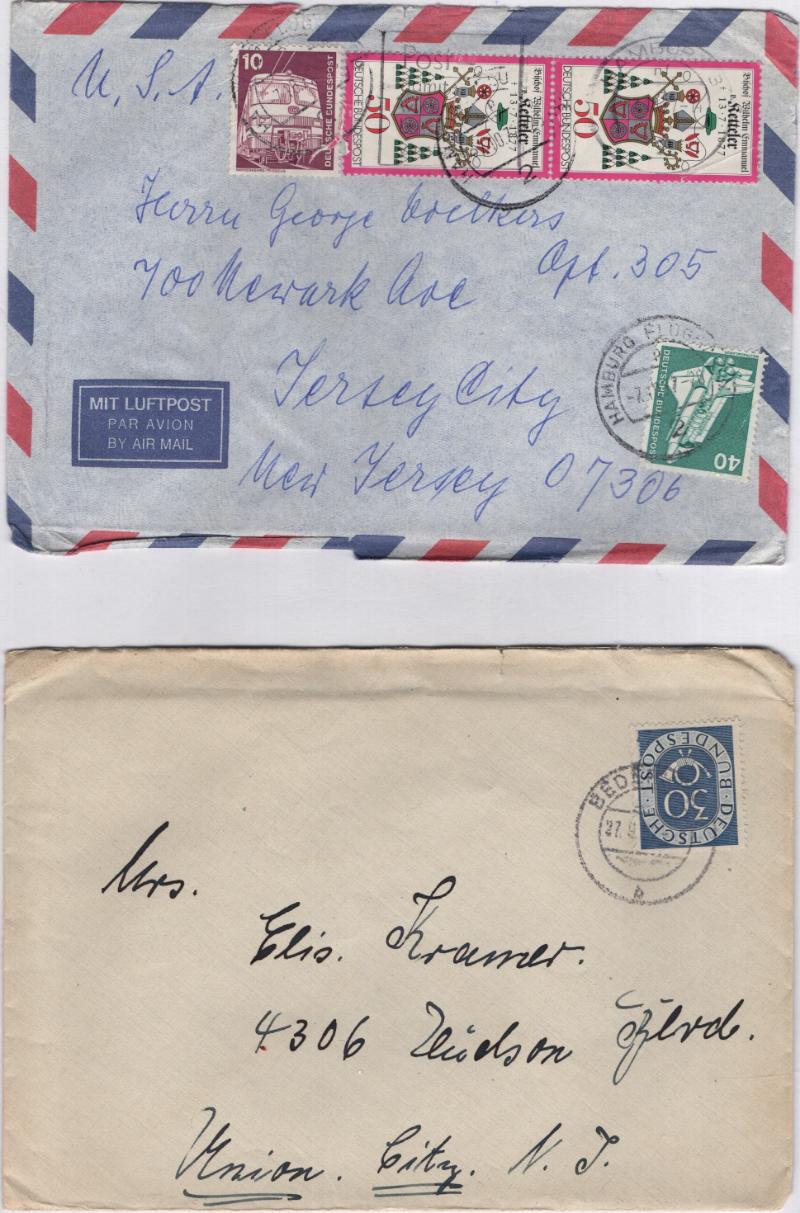 U.S.A.
10
DEUTSCHE BUNDESPOST
Bischof Wilhelm Emmanuel
v. Ketteler
† 13·7·1877
DEUTSCHE BUNDESPOST
50
Bischof Wilhelm Emmanuel
v. Ketteler
† 13·7·1877
DEUTSCHE BUNDESPOST
50
Herrn George Woelkers
700 Newark Ave Opt. 305
Jersey City
New Jersey 07306
MIT LUFTPOST
PAR AVION
BY AIR MAIL
HAMBURG
2
DEUTSCHE BUNDESPOST
40
DEUTSCHE BUNDESPOST
30
27.
b
Mrs.
Elis. Kramer.
4306 Hudson Blvd.
Union. City. N. J.